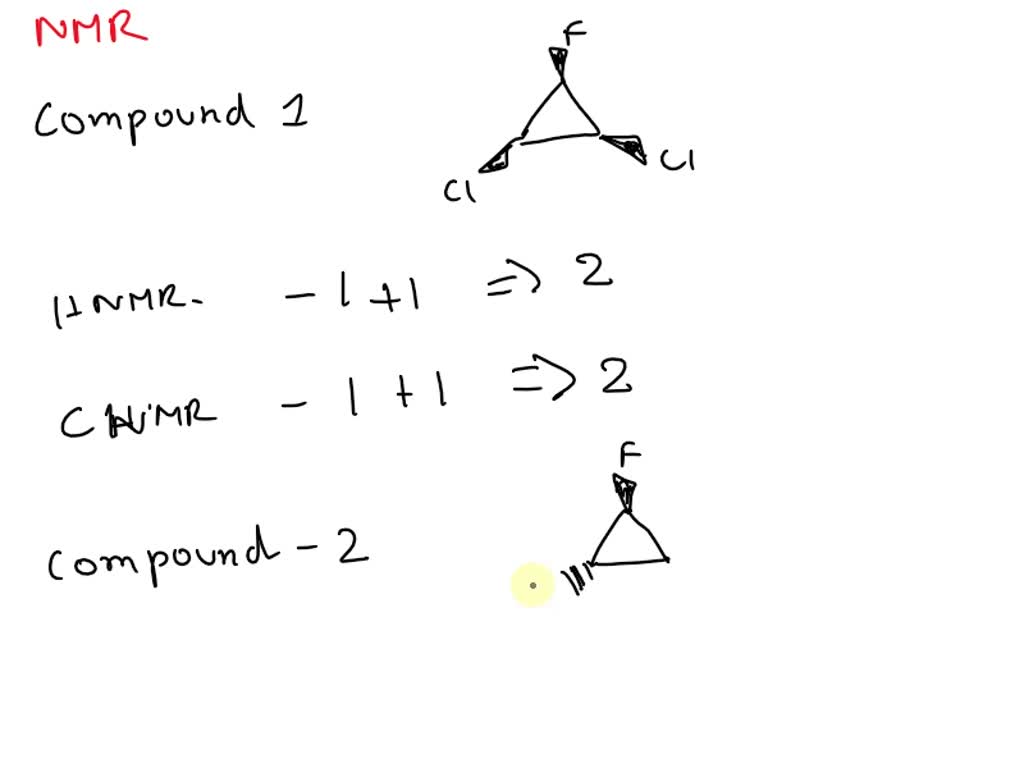 NMR
F
Compound 1
Cl
Cl
HNMR- - 1 +1 => 2
CNMR - 1 + 1 => 2
F
Compound - 2